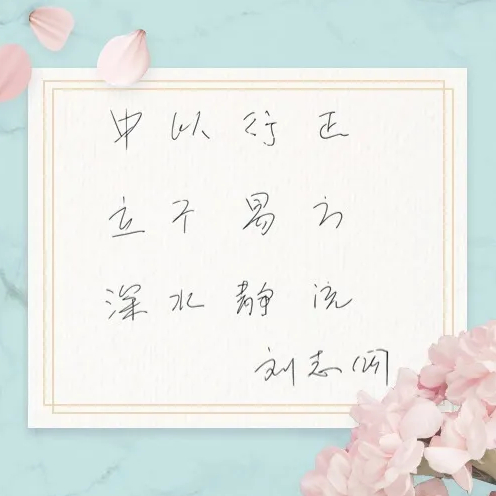 中以行正
立不易方
深水静流
刘志